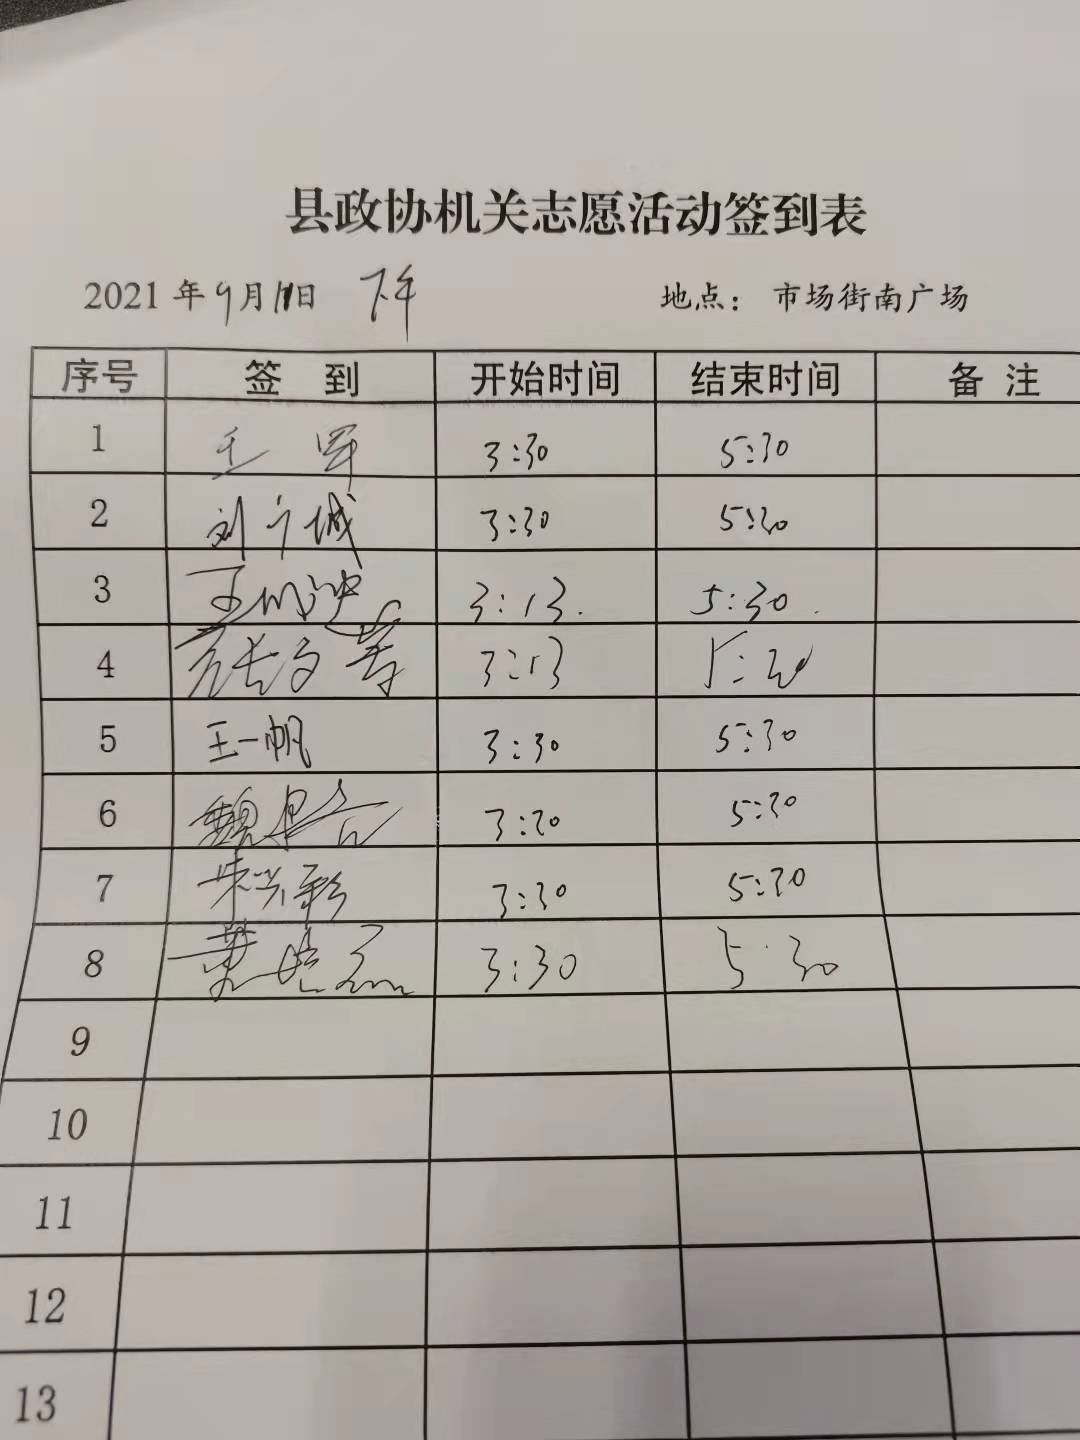 县政协机关志愿活动签到表
2021年9月11日 下午 地点：市场街南广场
序号 签到 开始时间 结束时间 备注
1 王军 3:30 5:30
2 刘广城 3:30 5:30
3 王 3:13. 5:30.
4 3:13 5:30
5 王一帆 3:30 5:30
6 魏 3:30 5:30
7 朱兴彩 3:30 5:30
8 3:30 5:30
9
10
11
12
13